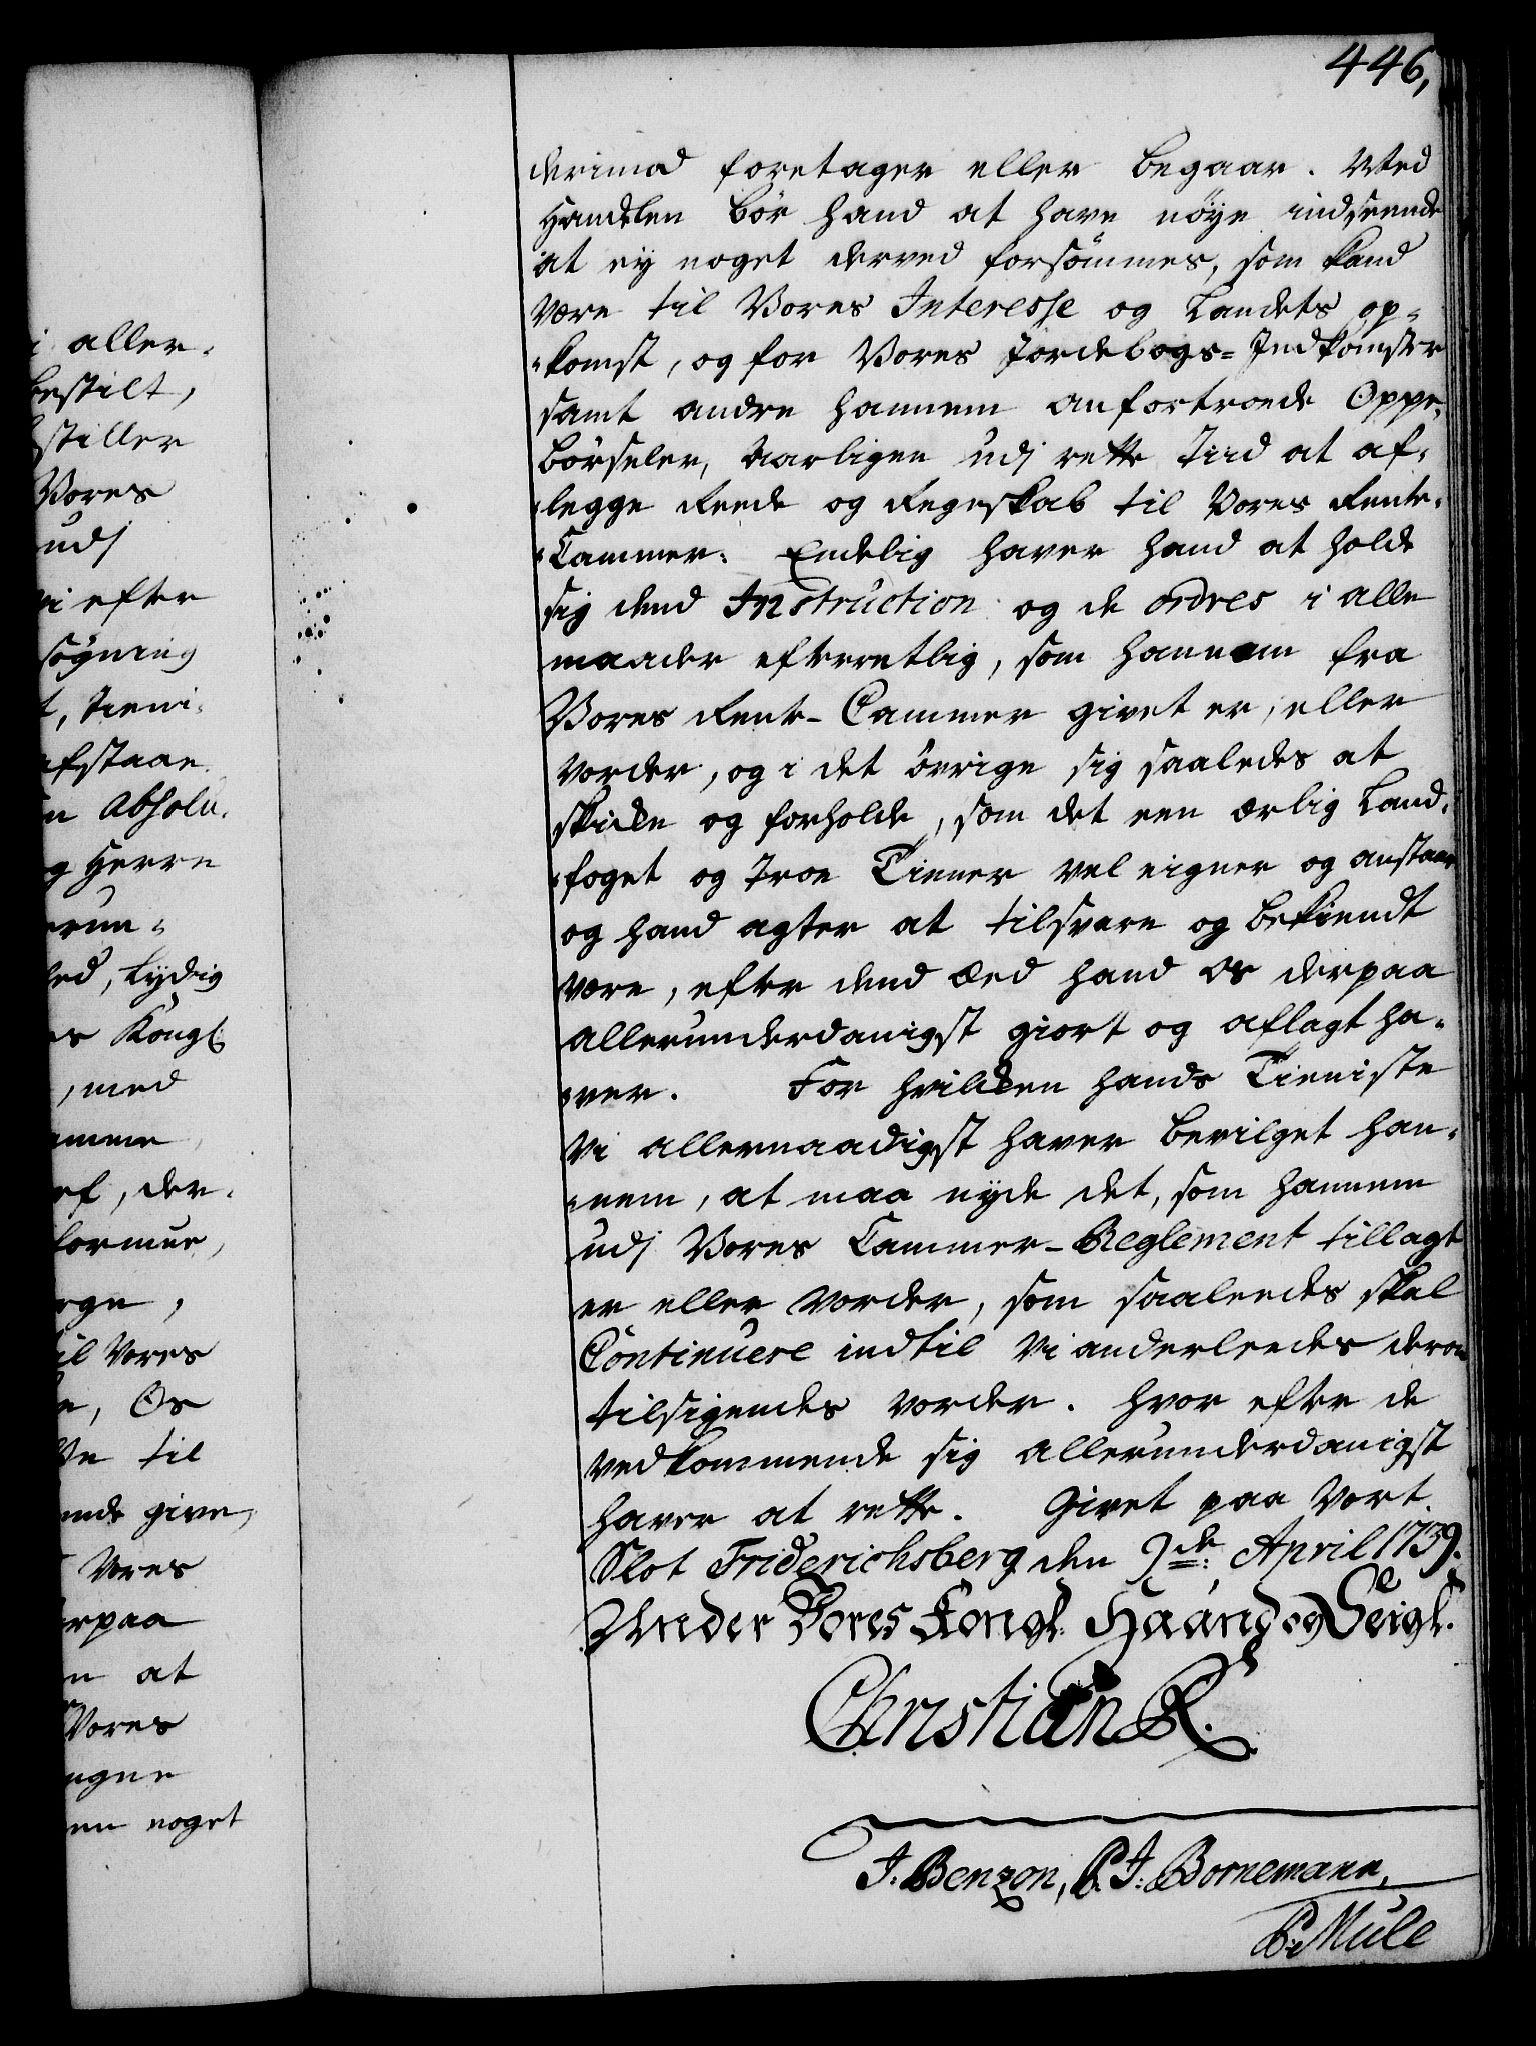 446,
derimod foretager eller begaar. Ved
Handelen bör hand at have nöye indseende
at ey noget derved forsömmes, som kand
være til Vores Interesse og Landets op-
komst, og for Vores Jordebogs-Indkomster
samt andre hannem anfortroede Oppe-
börseler, aarligen udj rette Tiid at af-
legge Reede og Regnskab til Vores Rente-
Cammer. Endelig haver hand at holde
sig dend Instruction og de ordres i alle
maader efterretlig, som hannem fra
Vores Rente-Cammer givet er, eller
vorder, og i det övrige sig saaledes at
skicke og forholde, som det een ærlig Land-
foget og Troe Tiener vel eigner og anstaar
og hand agter at tilsvare og bekiendt
være, efter dend Æed hand Os derpaa
allerunderdanigst giort og aflagt ha-
ver. For hvilcken hands Tieniste
Vi allernaadigst haver bevilget han-
nem, at maa nyde det, som hannem
udj Vores Cammer-Reglement tillagt
er eller vorder, som saaleedes skal
Continuere indtil Vi anderleedes derom
tilsigendes vorder. Hvor efter de
vedkommende sig allerunderdanigst
haver at rette. Givet paa Vort
Slot Friderichsberg den 9de: April 1739.
Under Vores Kongl. Haand og Seigl.
Christian R.
J. Benzon, P. J. Bornemann,
P. Mule
i aller-
bestilt,
stiller
Vores
udj
vi efter
sögning
t, Tieni-
afstaae
en Absolu-
g Herre
erun-
led, Lydig
es Kongl
, med
amme
ef, der-
formue,
rge,
til Vores
e, Os
de til
ende give,
Vores
erpaa
n at
Vores
egne
en noget